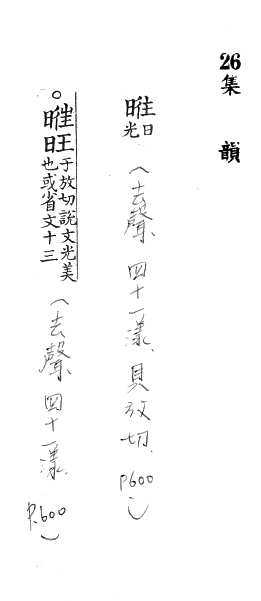 26集韻
暀日光(去聲、四十一漾、貝放切、P600)
○暀旺于放切說文光美也或省文十三(去聲、四十一漾、P.600)